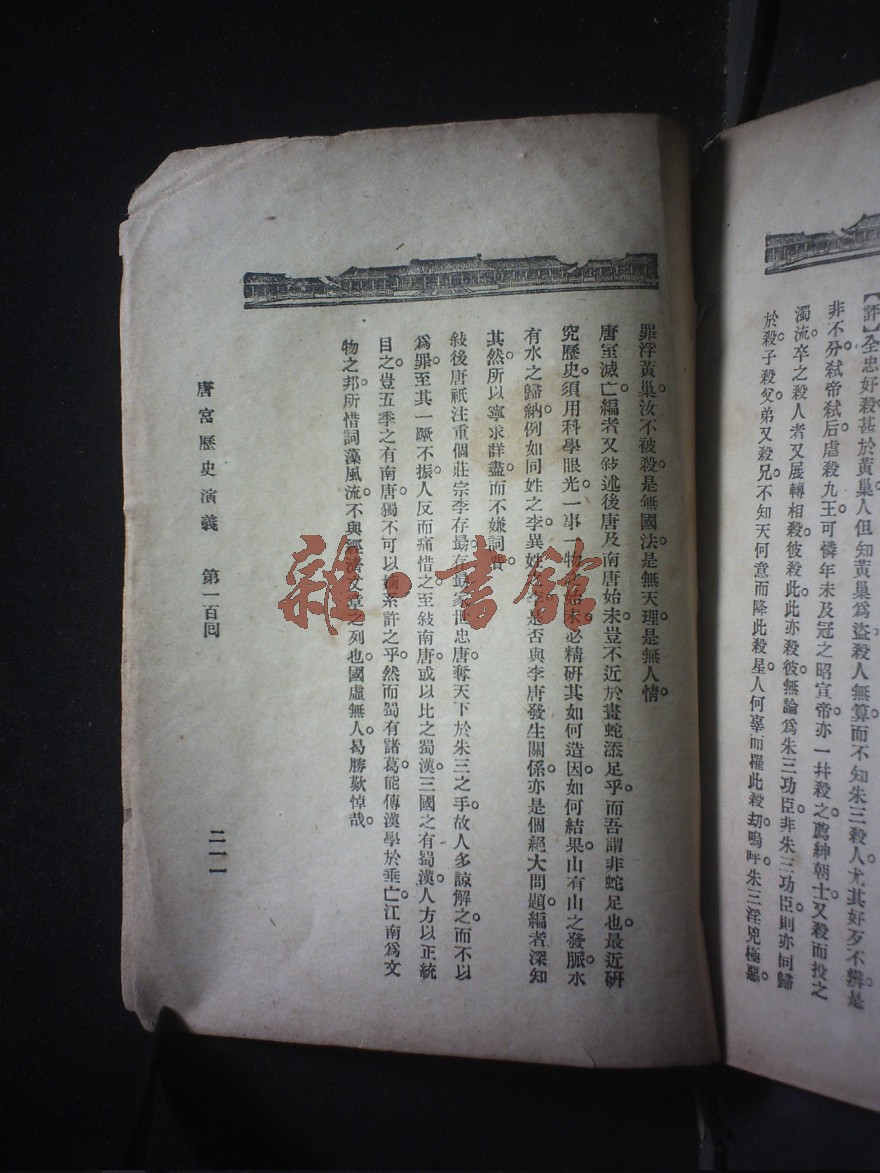 【評】全忠好殺甚於黃巢人但知黃巢爲盜殺人無算而不知朱三殺人尤其好歹不辨是
非不分弑帝弑后虐殺九王可憐年未及冠之昭宣帝亦一幷殺之薦紳朝士又殺而投之
濁流卒之殺人者又展轉相殺彼殺此此亦殺彼無論爲朱三功臣非朱三功臣則亦同歸
於殺子殺父弟又殺兄不知天何意而降此殺星人何辜而罹此殺劫嗚呼朱三淫兇極惡
罪浮黃巢汝不被殺是無國法是無天理是無人情
唐室滅亡編者又敍述後唐及南唐始末豈不近於畫蛇添足乎而吾謂非蛇足也最近研
究歷史須用科學眼光一事一物始末必精研其如何造因如何結果山有山之發脈水
有水之歸納例如同姓之李異姓之李是否與李唐發生關係亦是個絕大問題編者深知
其然所以寧求詳盡而不嫌詞費
敍後唐祇注重個莊宗李存勗存勗家世忠唐奪天下於朱三之手故人多諒解之而不以
爲罪至其一蹶不振人反而痛惜之至敍南唐或以比之蜀漢三國之有蜀漢人方以正統
目之豈五季之有南唐獨不可以嫡系許之乎然而蜀有諸葛能傳漢學於垂亡江南爲文
物之邦所惜詞藻風流不與經濟文章之列也國虛無人曷勝歎悼哉
唐宮歷史演義 第一百回
二一一
雜·書館